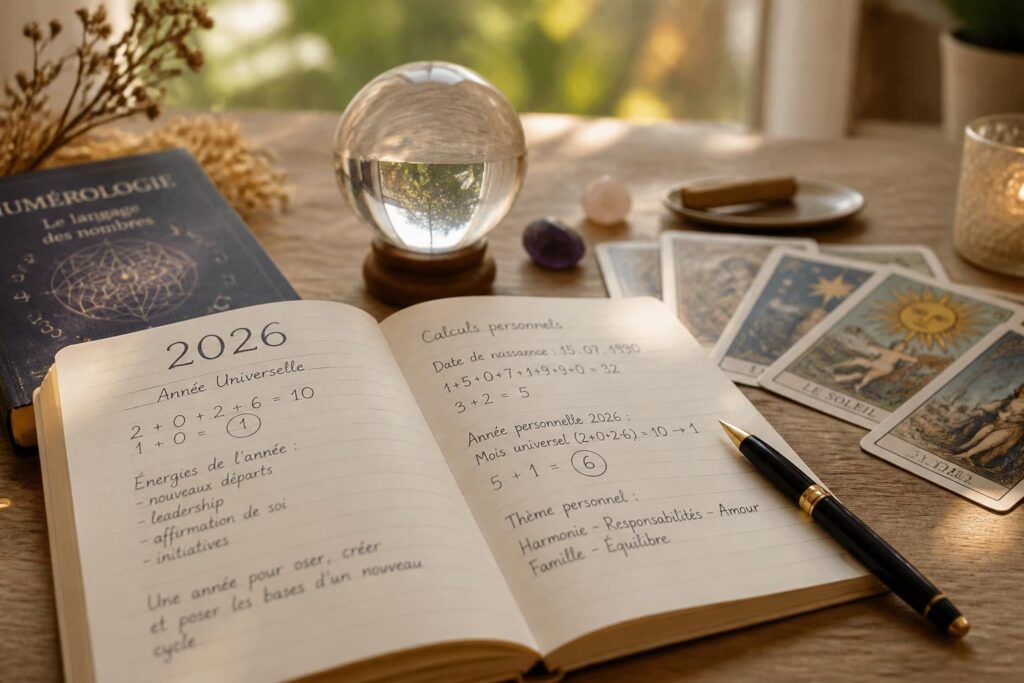 NUMÉROLOGIE
Le langage
des nombres
2026
Année Universelle
2 + 0 + 2 + 6 = 10
1 + 0 = 1
Énergies de l'année :
- nouveaux départs
- leadership
- affirmation de soi
- initiatives
Une année pour oser, créer
et poser les bases d'un nouveau
cycle.
Calculs personnels
Date de naissaence : 15.07.1990
1+5+0+7+1+9+9+0 = 32
3 + 2 = 5
Année personnelle 2026 :
Mois universel (2+0+2-6) = 10 → 1
5 + 1 = 6
Thème personnel :
Harmonie - Responsabilités - Amour
Famille - Équilibre
LE SOLEIL